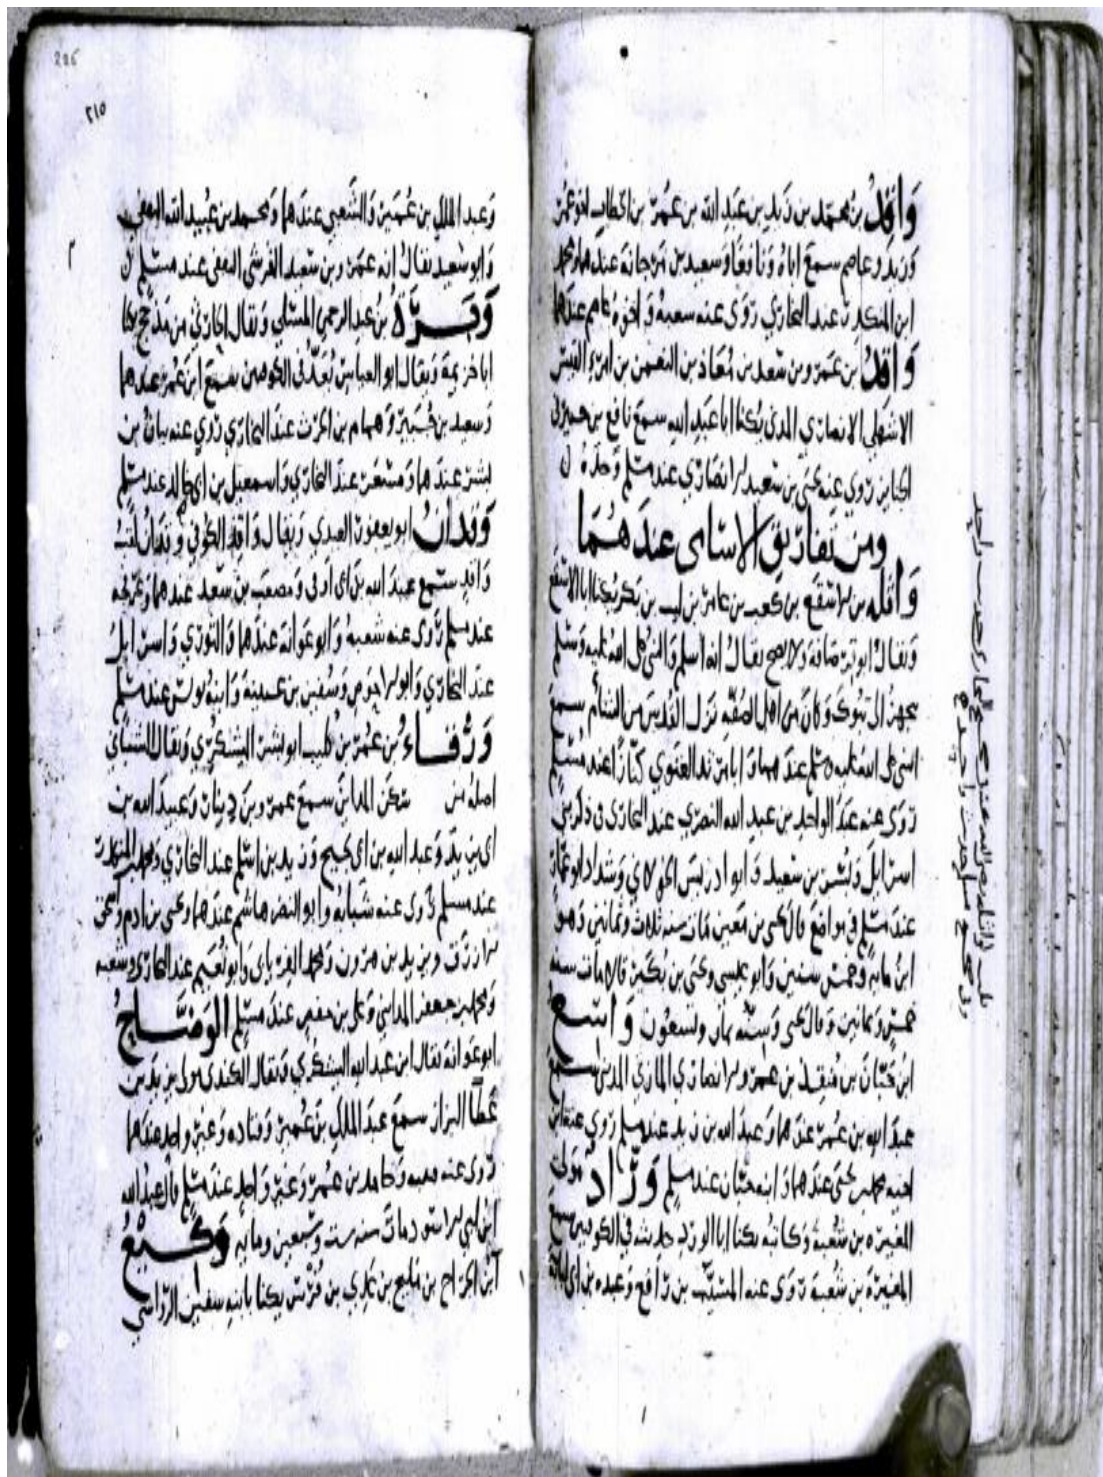 وَاقِدُ بن محمد بن زيد بن عبد الله بن عمر بن الخطاب اخو عمر
وزيد وعاصم سمع اباه ونافعا وسعيد بن مرجانة عندهما ومحمد
ابن المنكدر عند البخاري روى عنه شعبة واخوه عاصم عندهما
وَاقِدُ بن عمرو بن سعد بن معاذ بن النعمن بن امرؤ القيس
الاشهلي الانصاري المدني يكنا ابا عبد الله سمع نافع بن جبير في
الجنايز روى عنه يحيى بن سعيد الانصاري عند مسلم وحده
ومن تفاريق الاسامى عندهما
واثله بن الاسقع بن كعب بن عامر بن ليث بن بكر يكنا ابا الاسقع
ويقال ابو قرصافة ولا يصح يقال انه اسلم والنبي صلى الله عليه وسلم
يجهز الى تبوك وكان من اهل الصفة نزل القدس من الشام سمع
النبي صلى الله عليه وسلم عندهما وابا مرثد الغنوي كنازا عند مسلم
روى عنه عبد الواحد بن عبد الله النصري عند البخاري في ذكر بني
اسرايل وبسر بن سعيد وابو ادريس الخولاني وشداد ابو عمار
عند مسلم في مواضع قال يحيى بن معين مات سنه ثلاث وثمانين وهو
ابن مايه وخمس سنين وابو عيسى ويحيى بن بكير قالا مات سنه
خمس وثمانين وقال يحيى وسنه ثمان وتسعون واسع
ابن حبان بن منقذ بن عمرو الانصاري المازني المدني سمع
عبد الله بن عمر عندهما وعبد الله بن زيد عند مسلم روى عنه ابن
اخيه محمد بن يحيى عندهما وابنه حبان عند مسلم وَرَّادُ مولى
المغيره بن شعبة وكاتبه يكنا ابا الورد حديثه في الكوفيين سمع
المغيرة بن شعبة روى عنه المسيب بن رافع وعبده بن ابي لبابة
٢١٥
وعبد الملك بن عمير والشعبي عندهما ومحمد بن عبيد الله الثقفي
وابو سعيد يقال انه عمرو بن سعيد القرشي الثقفي عند مسلم
وَبَرَةُ بن عبد الرحمن المسلي ويقال الحارثي من مذحج يكنا
ابا خزيمة ويقال ابو العباس يعد في الكوفيين سمع ابن عمر عندهما
وسعيد بن جبير وهمام بن الحرث عند البخاري روى عنه بيان بن
بشر عندهما ومسعر عند البخاري واسماعيل بن ابي خالد عند مسلم
وَقْدَانُ ابو يعفور العبدي ويقال واقد الكوفي وقدان لقب
واقد سمع عبد الله بن ابي اوفى ومصعب بن سعد عندهما وعرفجه
عند مسلم روى عنه شعبة وابو عوانة عندهما والثوري واسرايل
عند البخاري وابو الاحوص وسفين بن عيينة وابنه يونس عند مسلم
وَرْقَاءُ بن عمر بن كليب ابو بشر اليشكري ويقال الشيباني
اصله من سكن المداين سمع عمرو بن دينار وعبيد الله بن
ابي يزيد وعبد الله بن ابي نجيح وزيد بن اسلم عند البخاري ومحمد بن المنكدر
عند مسلم روى عنه شبابه وابو النضر هاشم عندهما ويحيى بن ادم واسحق
الازرق ويزيد بن هرون ومحمد الفريابي وابو نعيم عند البخاري وشعبه
ومحمد بن جعفر المدايني وعلي بن حفص عند مسلم الوَضَّاحُ
ابو عوانة يقال ابن عبد الله اليشكري ويقال الكندي مولى يزيد بن
عطا البزاز سمع عبد الملك بن عمير وقتاده وغير واحد عندهما
روى عنه شعبه وحامد بن عمر وغير واحد عند مسلم قال عبد الله
ابن ابي الاسود مات سنه ست وسبعين ومايه وَكِيْعُ
ابن الجراح بن مليح بن عدي بن فرس يكنا بابنه سفين الرؤاسي